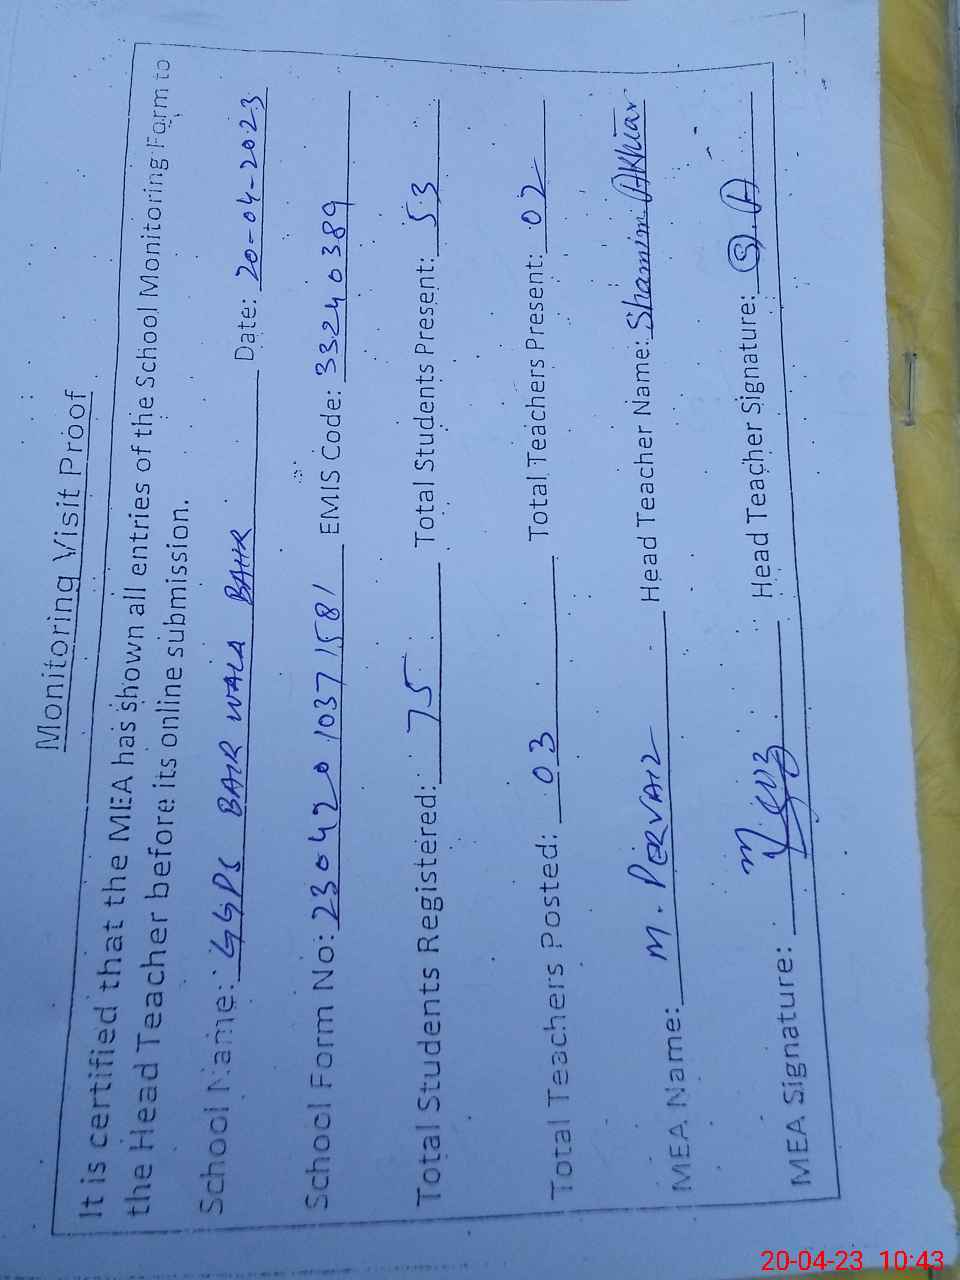 Monitoring Visit Proof
It is certified that the MEA has shown all entries of the School Monitoring Form to
the Head Teacher before its online submission.
School Name: GGPS BAIR WALA BAHR Date: 20-04-2023
School Form No: 230420 1037 1581 EMIS Code: 33240389
Total Students Registered: 75 Total Students Present: 53
Total Teachers Posted: 03 Total Teachers Present: 02
MEA Name: M. PERVAIZ Head Teacher Name: Shamim Akhtar
MEA Signature: Head Teacher Signature: S.A
20-04-23 10:43